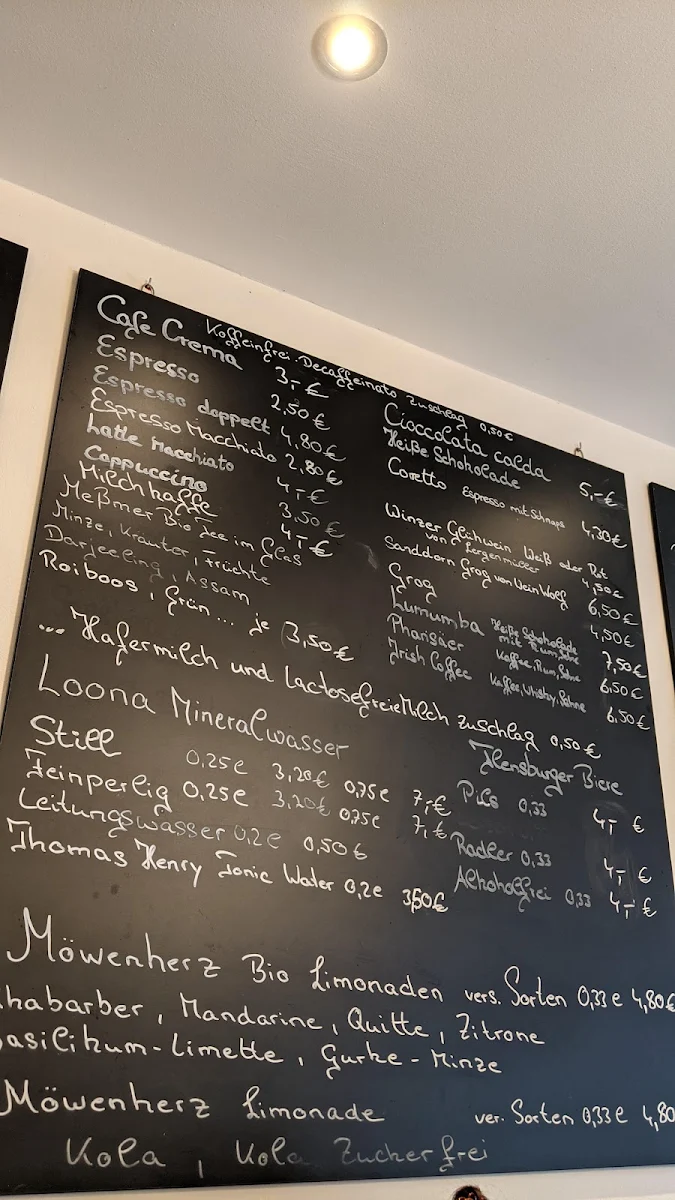 Koffeinfrei. Decaffeinato zuschlag 0,50€
Cafe Crema 3,-€
Espresso 2,50€
Espresso doppelt 4,80€
Espresso Macchiato 2,80€
Latte Macchiato 4,-€
Cappuccino 3,50€
Milchkaffe 4,-€
Meßmer Bio Tee im Glas
Minze, Kräuter, Früchte
Darjeeling, Assam
Roiboos, Grün... je 3,50€
Cioccolata calda
Heiße Schokolade 5,-€
Coretto Espresso mit Schnaps 4,30€
Winzer Glühwein Weiß oder Rot
von 4,50€
Sanddorn Grog von Wein Wolf 6,50€
Grog 4,50€
Lumumba Heiße Schokolade
mit Rum, Sahne 7,50€
Pharisäer Kaffee, Rum, Sahne 6,50€
Irish Coffee Kaffee, Whisky, Sahne 6,50€
... Hafermilch und lactosefreie Milch zuschlag 0,50€
Loona Mineralwasser
Still 0,25l 3,20€ 0,75l 7,-€
Feinperlig 0,25l 3,20€ 0,75l 7,-€
Leitungswasser 0,2l 0,50€
Thomas Henry Tonic Water 0,2l 3,50€
Flensburger Biere
Pils 0,33 4,- €
Radler 0,33 4,- €
Alkoholfrei 0,33 4,- €
Möwenherz Bio Limonaden vers. Sorten 0,33l 4,80€
habarber, Mandarine, Quitte, Zitrone
asilikum-Limette, Gurke-Minze
Möwenherz Limonade ver. Sorten 0,33l 4,80
Kola, Kola Zuckerfrei